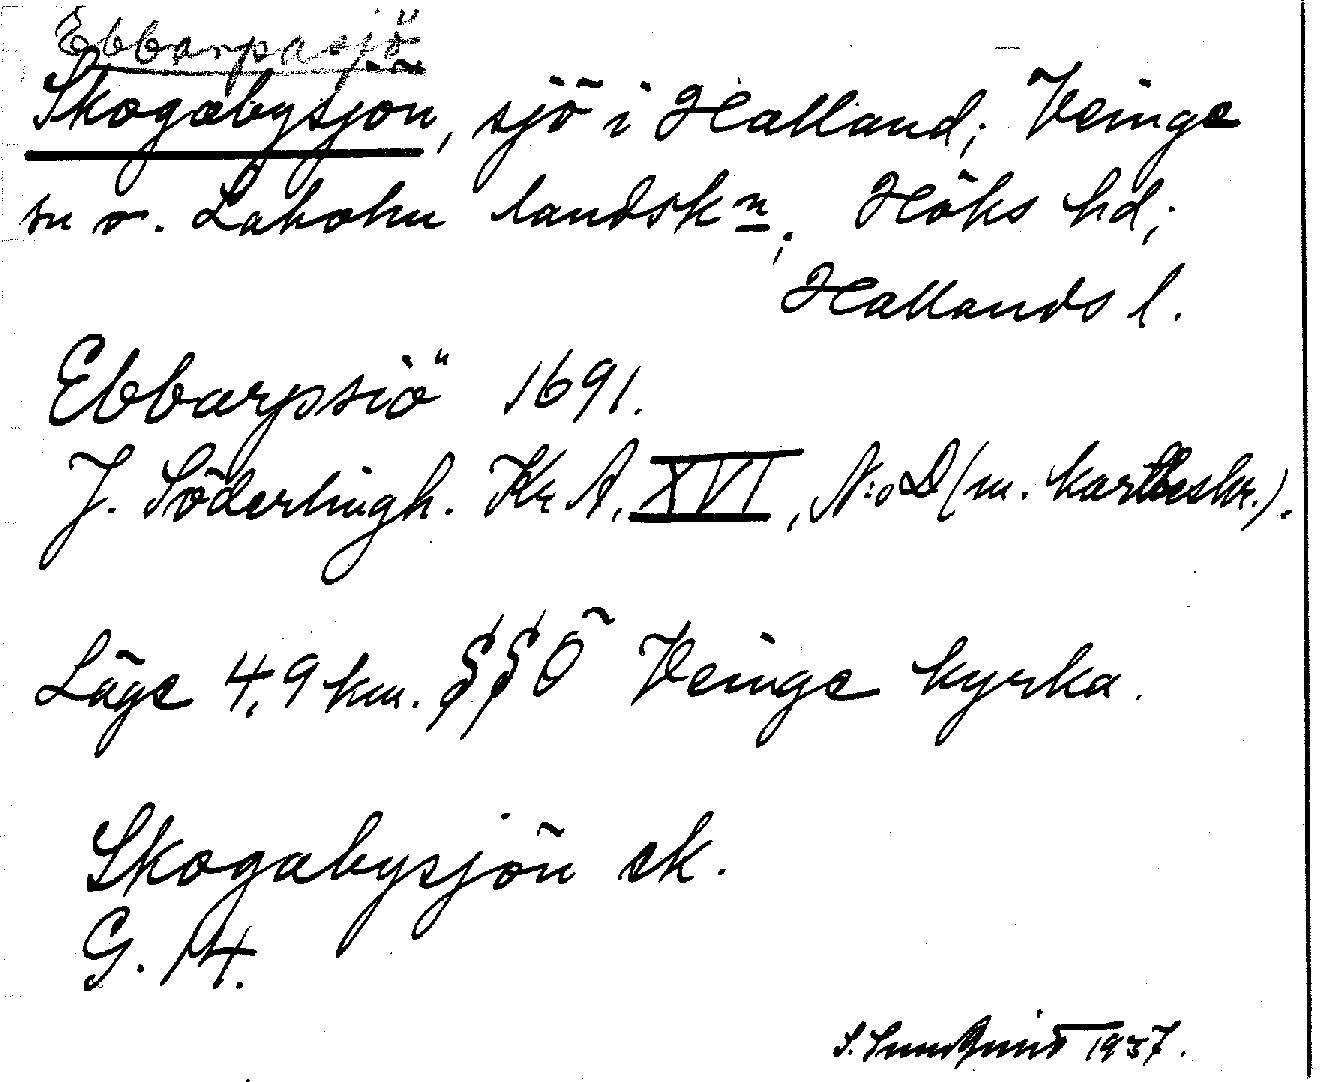 Ebbarpasjö
Skogabysjön, sjö i Halland; Veinge
sn o. Laholm landskn; Höks hd;
Hallands l.
Ebbarpsiö 1691.
J. Söderlingh. Kr A, XVI, N:o D (m. kartbeskr.).
Läge 4,9 km. §§Ö Veinge kyrka.
Skogabysjön ek.
G. 14.
S. Sundqvist 1937.